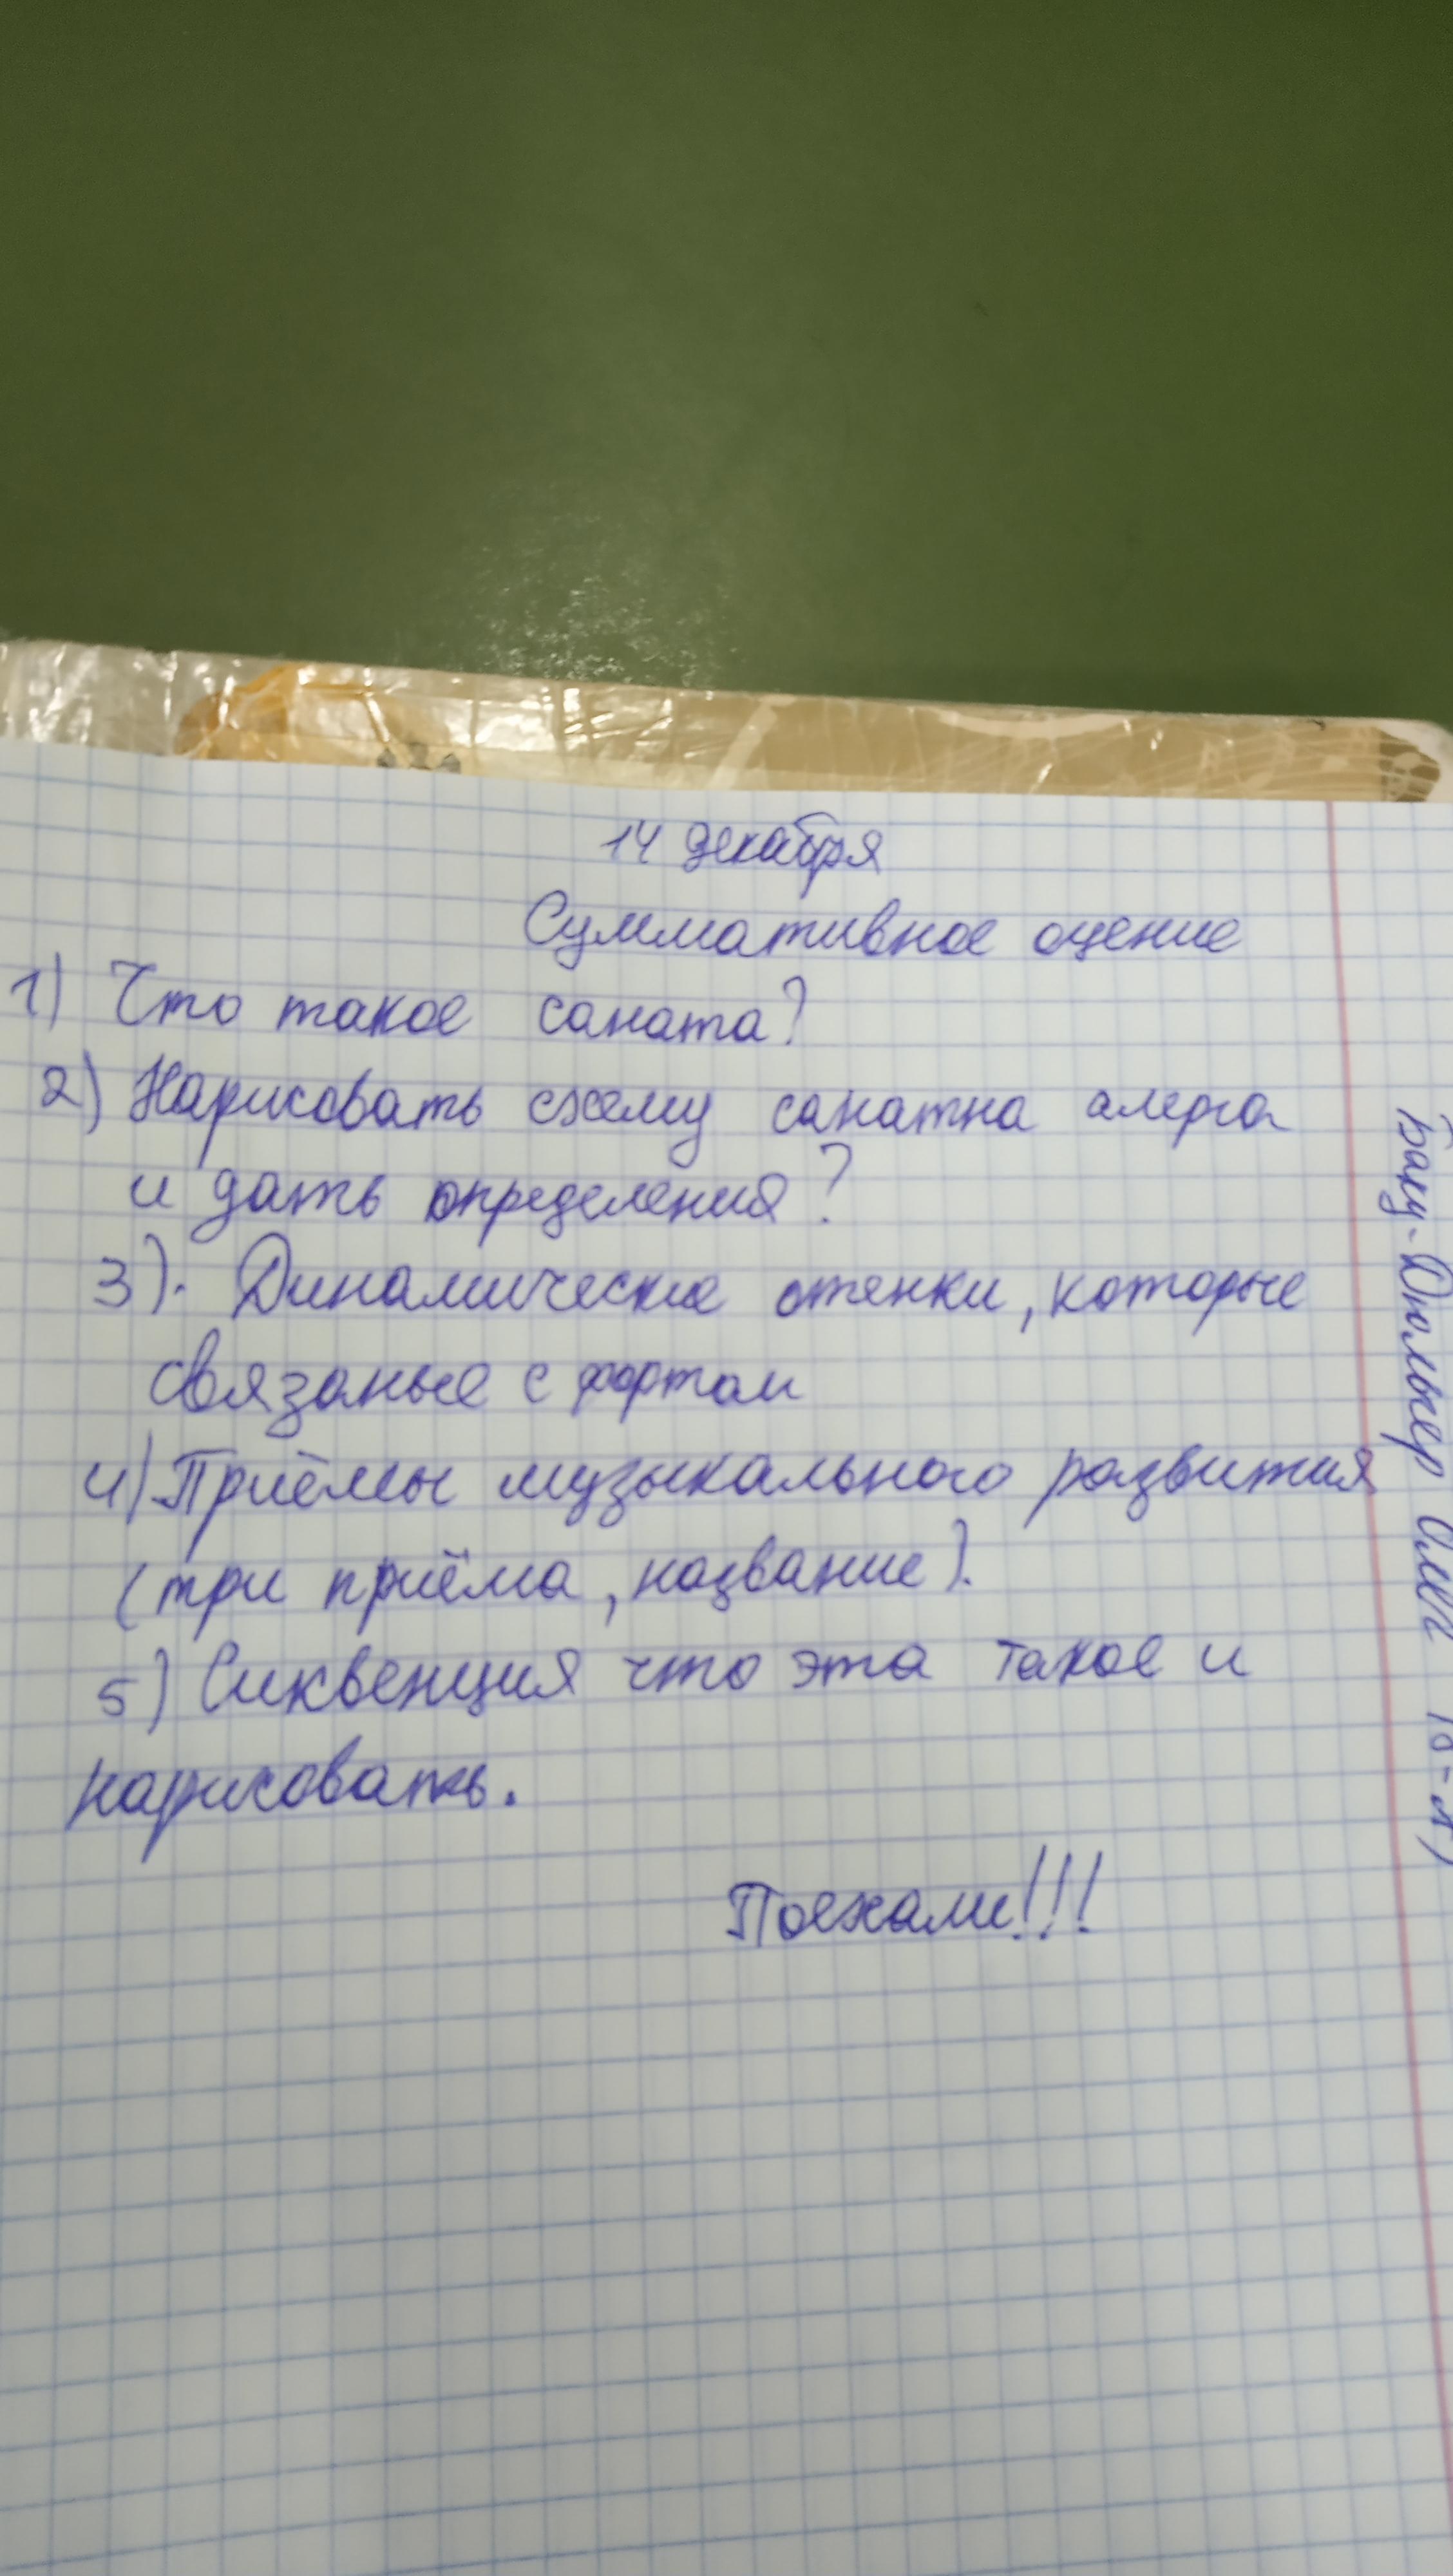 14 декабря
Суммативное оцение
1) Что такое саната?
2) Нарисовать схему санатна алегра
и дать определения?
3). Динамические отенки, которые
связаные с фортом
4) Приёмы музыкального развития
(три приёма, название).
5) Сиквенция что эта такое и
нарисовать.
Поехали!!!
Баку-